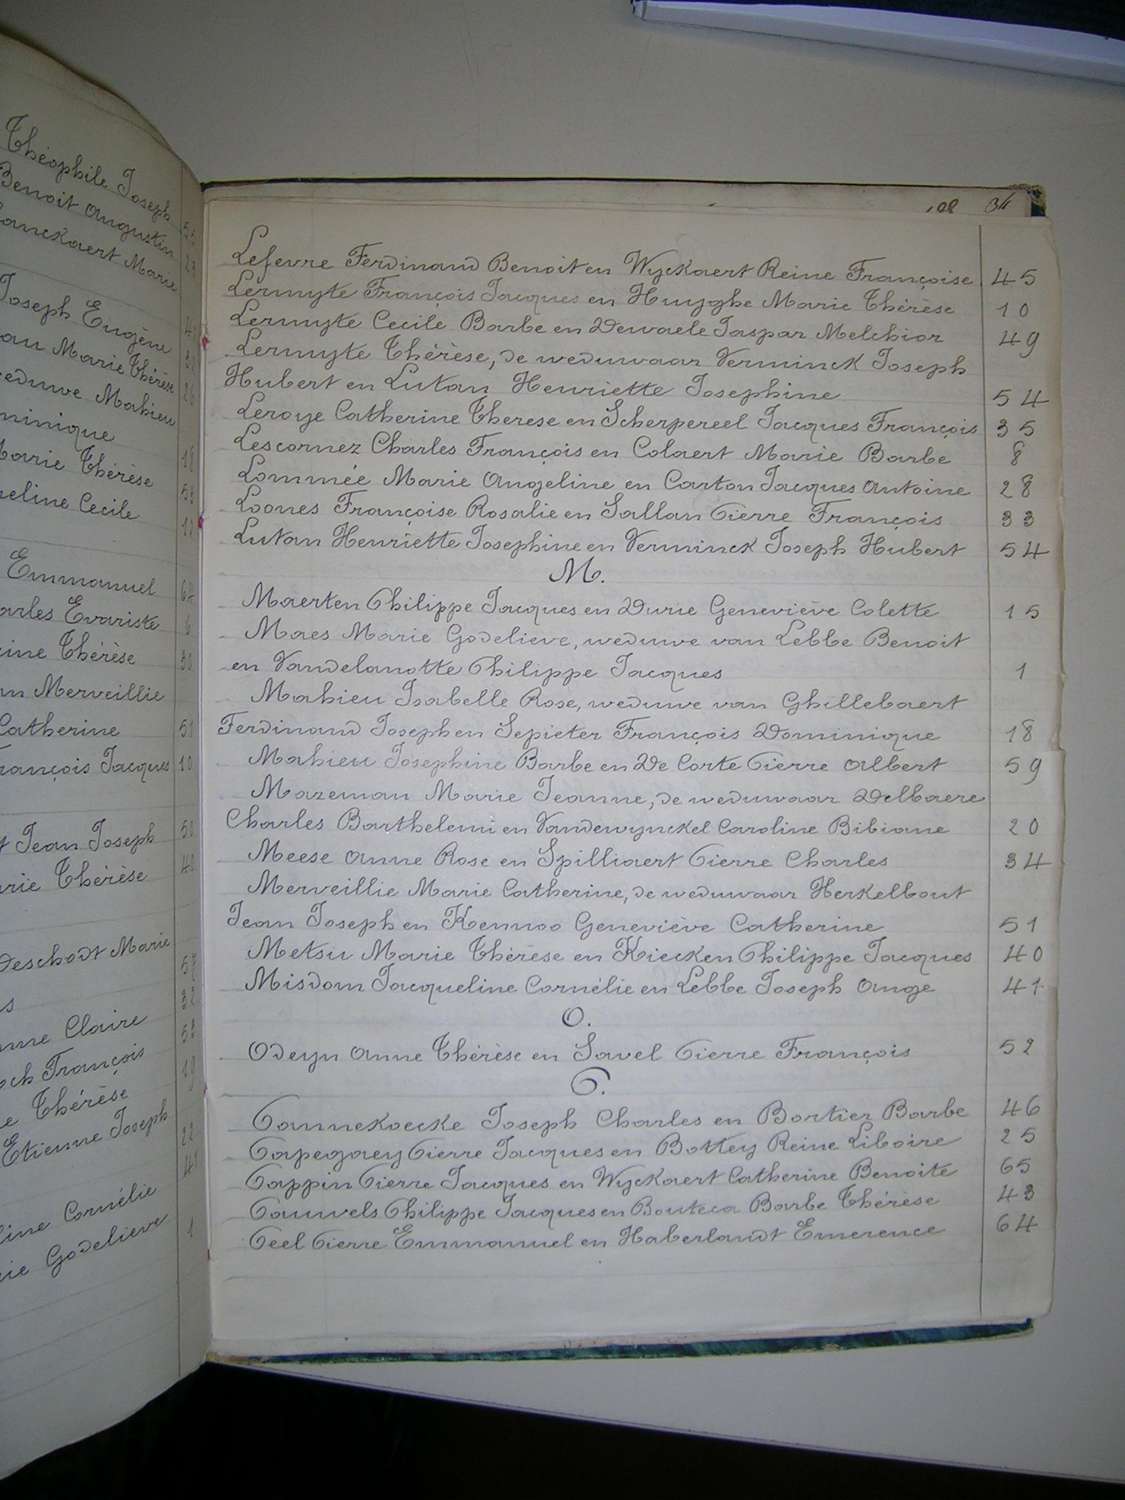 Théophile Joseph
Benoit Augustin
anckaert Marie
Joseph Eugène
au Marie Thérèse
eduwe Mahieu
minique
Marie Thérèse
eline Cecile
Emmanuel
arles Evariste
ine Thérèse 30
an Merveillie
Catherine 51
rançois Jacques 10
t Jean Joseph
rie Thérèse 40
Deschodt Marie
s
nne Claire
och François
e Thérèse
Etienne Joseph
line Cornélie
ie Godelieve 1
108 34
Lefevre Ferdinand Benoit en Wyckaert Reine Françoise 45
Lermyte François Jacques en Huyghe Marie Thérèse 10
Lermyte Cecile Barbe en Dewaele Jaspar Melchior 49
Lermyte Thérèse, de weduwaar Verminck Joseph
Hubert en Lutan Henriette Josephine 54
Leroye Catherine Therese en Scherpereel Jacques François 35
Lescornez Charles François en Colaert Marie Barbe 8
Lommée Marie Angeline en Carton Jacques Antoine 28
Loones Françoise Rosalie en Sallan Pierre François 33
Lutan Henriette Josephine en Verminck Joseph Hubert 54
M.
Maerten Philippe Jacques en Durie Geneviève Colette 15
Maes Marie Godelieve, weduwe van Lebbe Benoit
en Vandelanotte Philippe Jacques 1
Mahieu Isabelle Rose, weduwe van Ghillebaert
Ferdinand Joseph en Sepieter François Dominique 18
Mahieu Josephine Barbe en De Corte Pierre Albert 59
Mazeman Marie Jeanne, de weduwaar Delbaere
Charles Barthelemi en Vandewynckel Caroline Bibiane 20
Meese Anne Rose en Spilliaert Pierre Charles 34
Merveillie Marie Catherine, de weduwaar Herkelbout
Jean Joseph en Kennoo Geneviève Catherine 51
Metsu Marie Thérèse en Kiecken Philippe Jacques 40
Misdom Jacqueline Cornélie en Lebbe Joseph Ange 41
O.
Odeyn Anne Thérèse en Savel Pierre François 52
P.
Pannekoecke Joseph Charles en Bortier Barbe 46
Papegaey Pierre Jacques en Bottey Reine Liboire 25
Pappin Pierre Jacques en Wyckaert Catherine Benoite 65
Pauwels Philippe Jacques en Bouteca Barbe Thérèse 43
Peel Pierre Emmanuel en Haberlandt Emerence 64